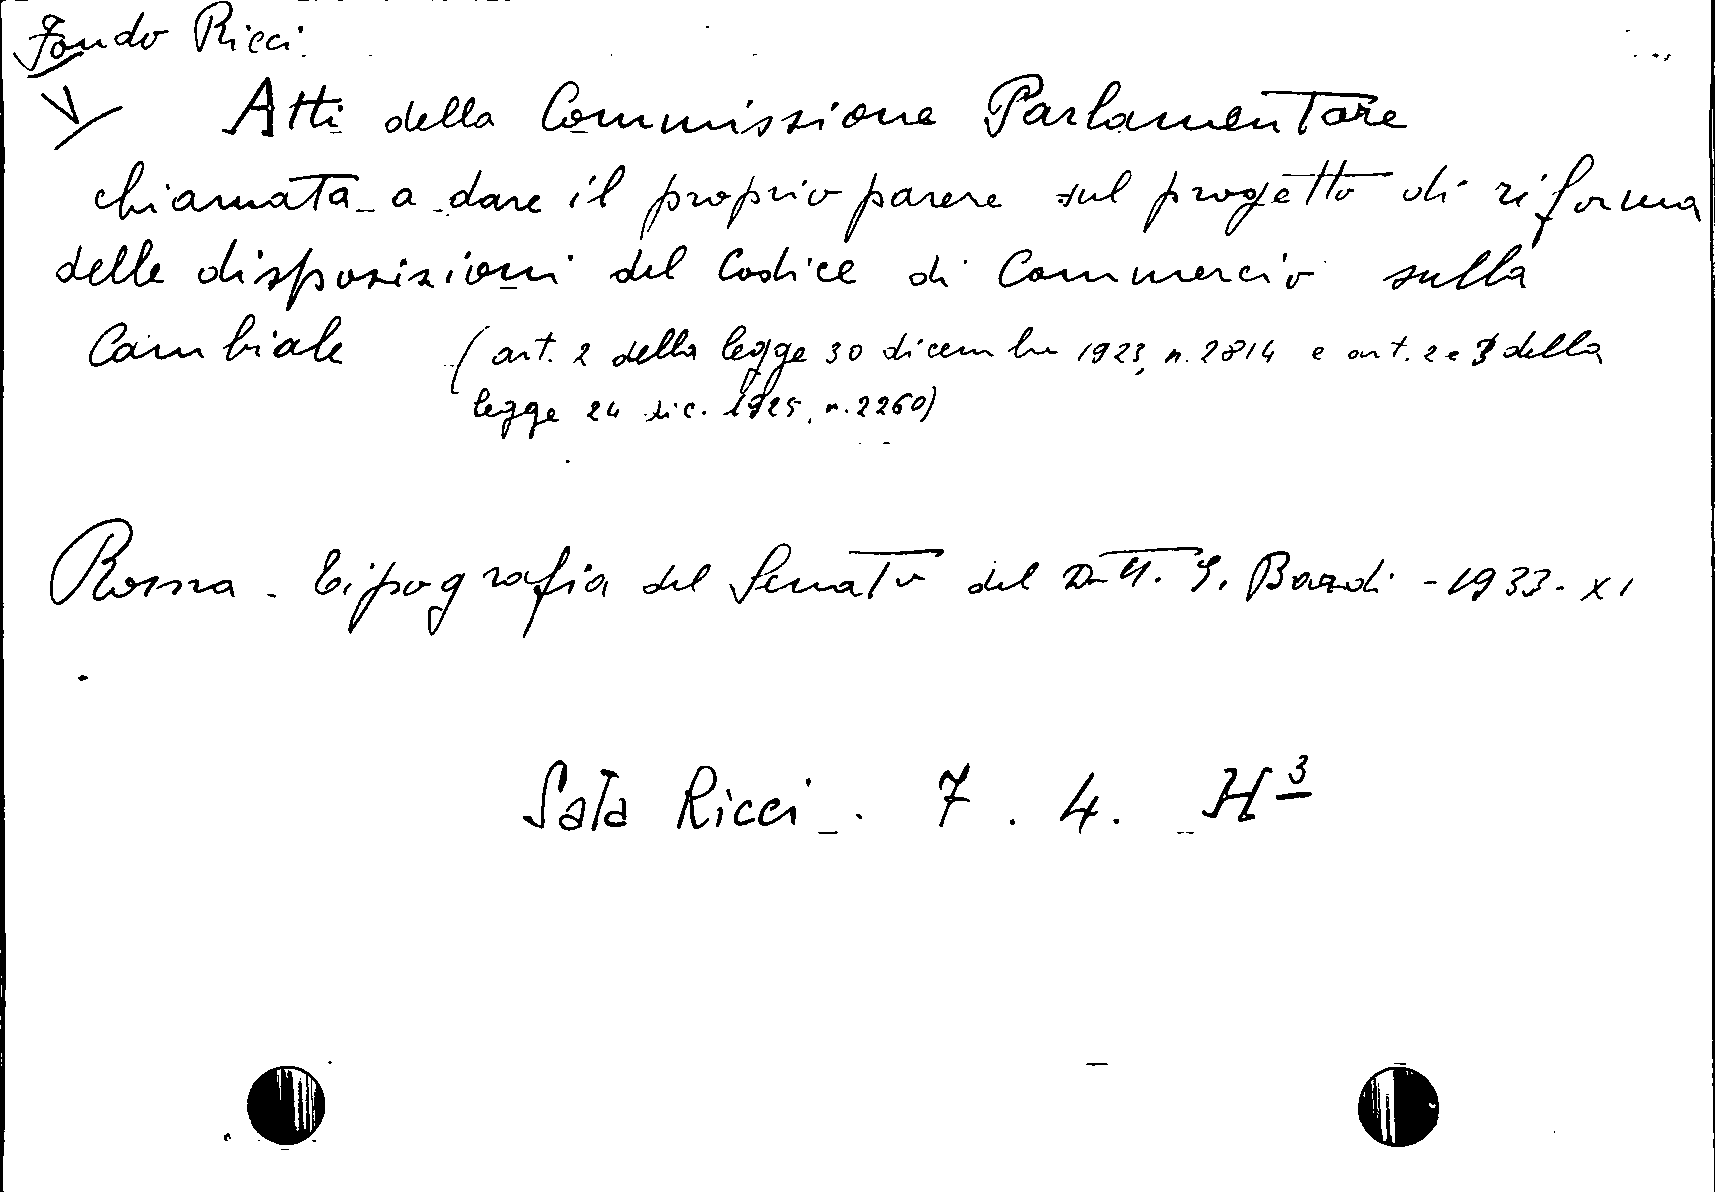 Fondo Ricci
V
Atti della Commissione Parlamentare
chiamata a dare il proprio parere sul progetto di riforma
delle disposizioni del Codice di Commercio sulla
Cambiale (art. 2 della legge 30 dicembre 1923, n. 2814 e art. 2 e 3 della
legge 24 dic. 1925, n. 2260)
Roma. Tipografia del Senato del Dott. G. Bardi - 1933. XI
Sala Ricci. 7. 4. H3